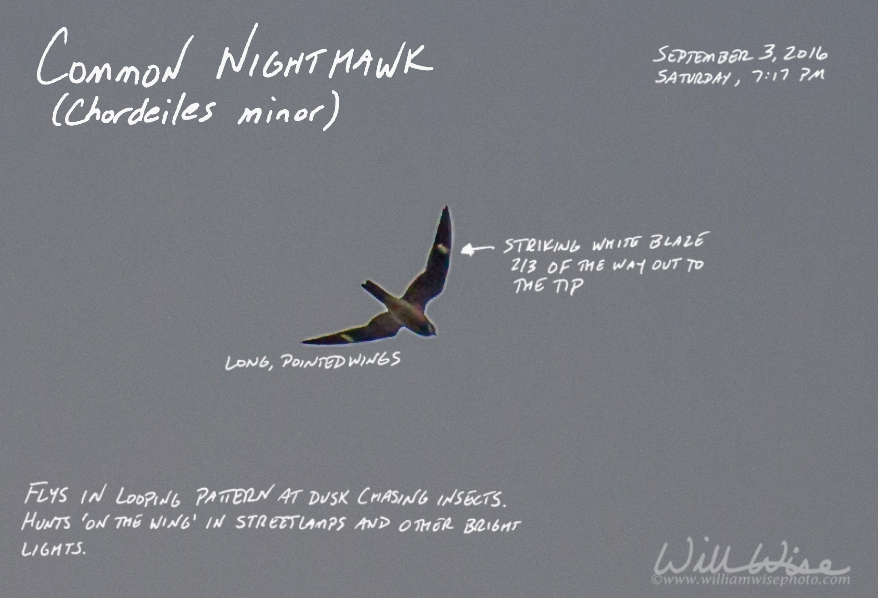 Common Nighthawk
(Chordeiles minor)
September 3, 2016
Saturday, 7:17 PM
Striking white blaze
2/3 of the way out to
the tip
Long, pointed wings
Flys in looping pattern at dusk chasing insects.
Hunts 'on the wing' in streetlamps and other bright
lights.
Will Wise
©www.williamwisephoto.com